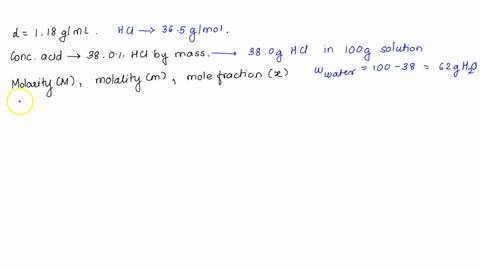 d = 1.18 g/mL. HCl → 36.5 g/mol.
Conc. acid → 38.0% HCl by mass. → 38.0g HCl in 100g solution
Molarity (M), molality (m), mole fraction (x) W water = 100 - 38 = 62 g H2O